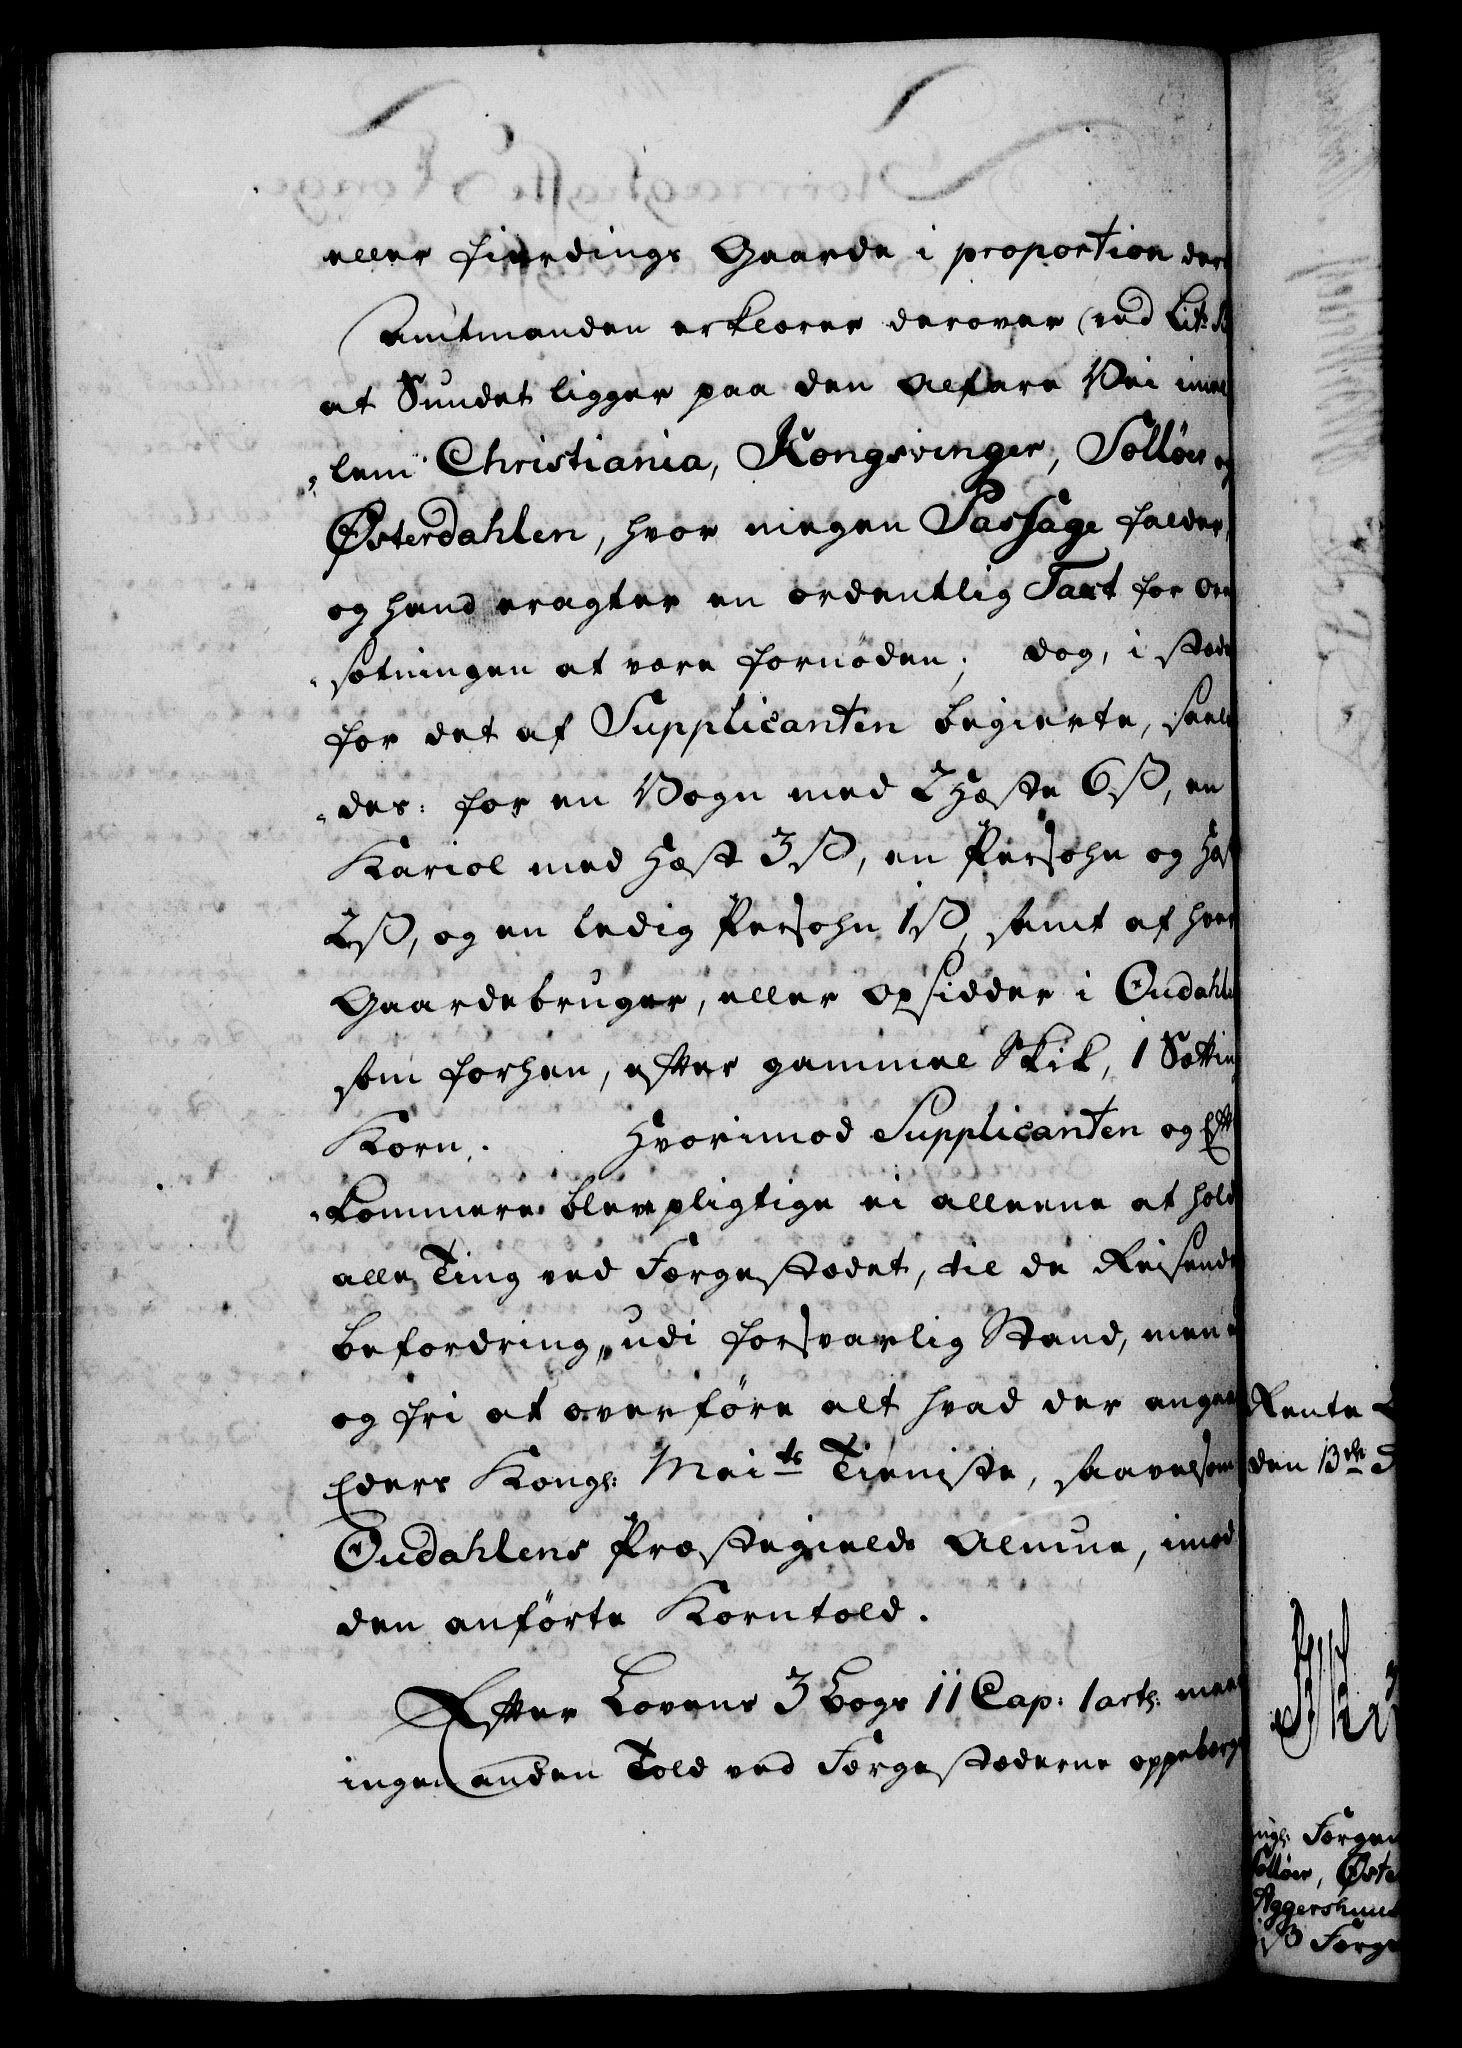 eller fierdings Gaarde i proportion der
Amtmanden erklærer derover (ved Lit:
at Sundet ligger paa den alfare Vei imel
„lem Christiania, Kongsvinger, Solløer og
Østerdahlen, hvor megen Passage falder,
og hand eragter en ordentlig Taxt for Over
„sætningen at være fornøden; dog, i stæde
for det af Supplicanten begierte, saale
„des: for en Vogn med 2 Heste 6 ß, en
Kariol med Hest 3 ß, en Persohn og Hest
2 ß, og en ledig Persohn 1 ß, samt af hver
Gaardebruger, eller Opsidder i Oudahlen
som forhen, efter gammel Skik, 1 Sætting
Korn. Hvorimod Supplicanten og Efter
„kommere blev pligtige ei alleene at holde
alle Ting ved Færgestædet, til de Reisendes
befordring, udi forsvarlig Stand, men
og fri at overføre alt hvad der angaar
Eders Kongl: Maits Tieniste, saavelsom
Oudahlens Præstegields Almue, imod
den anførte Korntold.
Efter Lovens 3 Bogs 11 Cap: 1 artl: maae
ingen anden Told ved Færgestæderne oppebærge
Rente
den 13de
Færgen
Solløer, Øste
Aggershuus
Færge